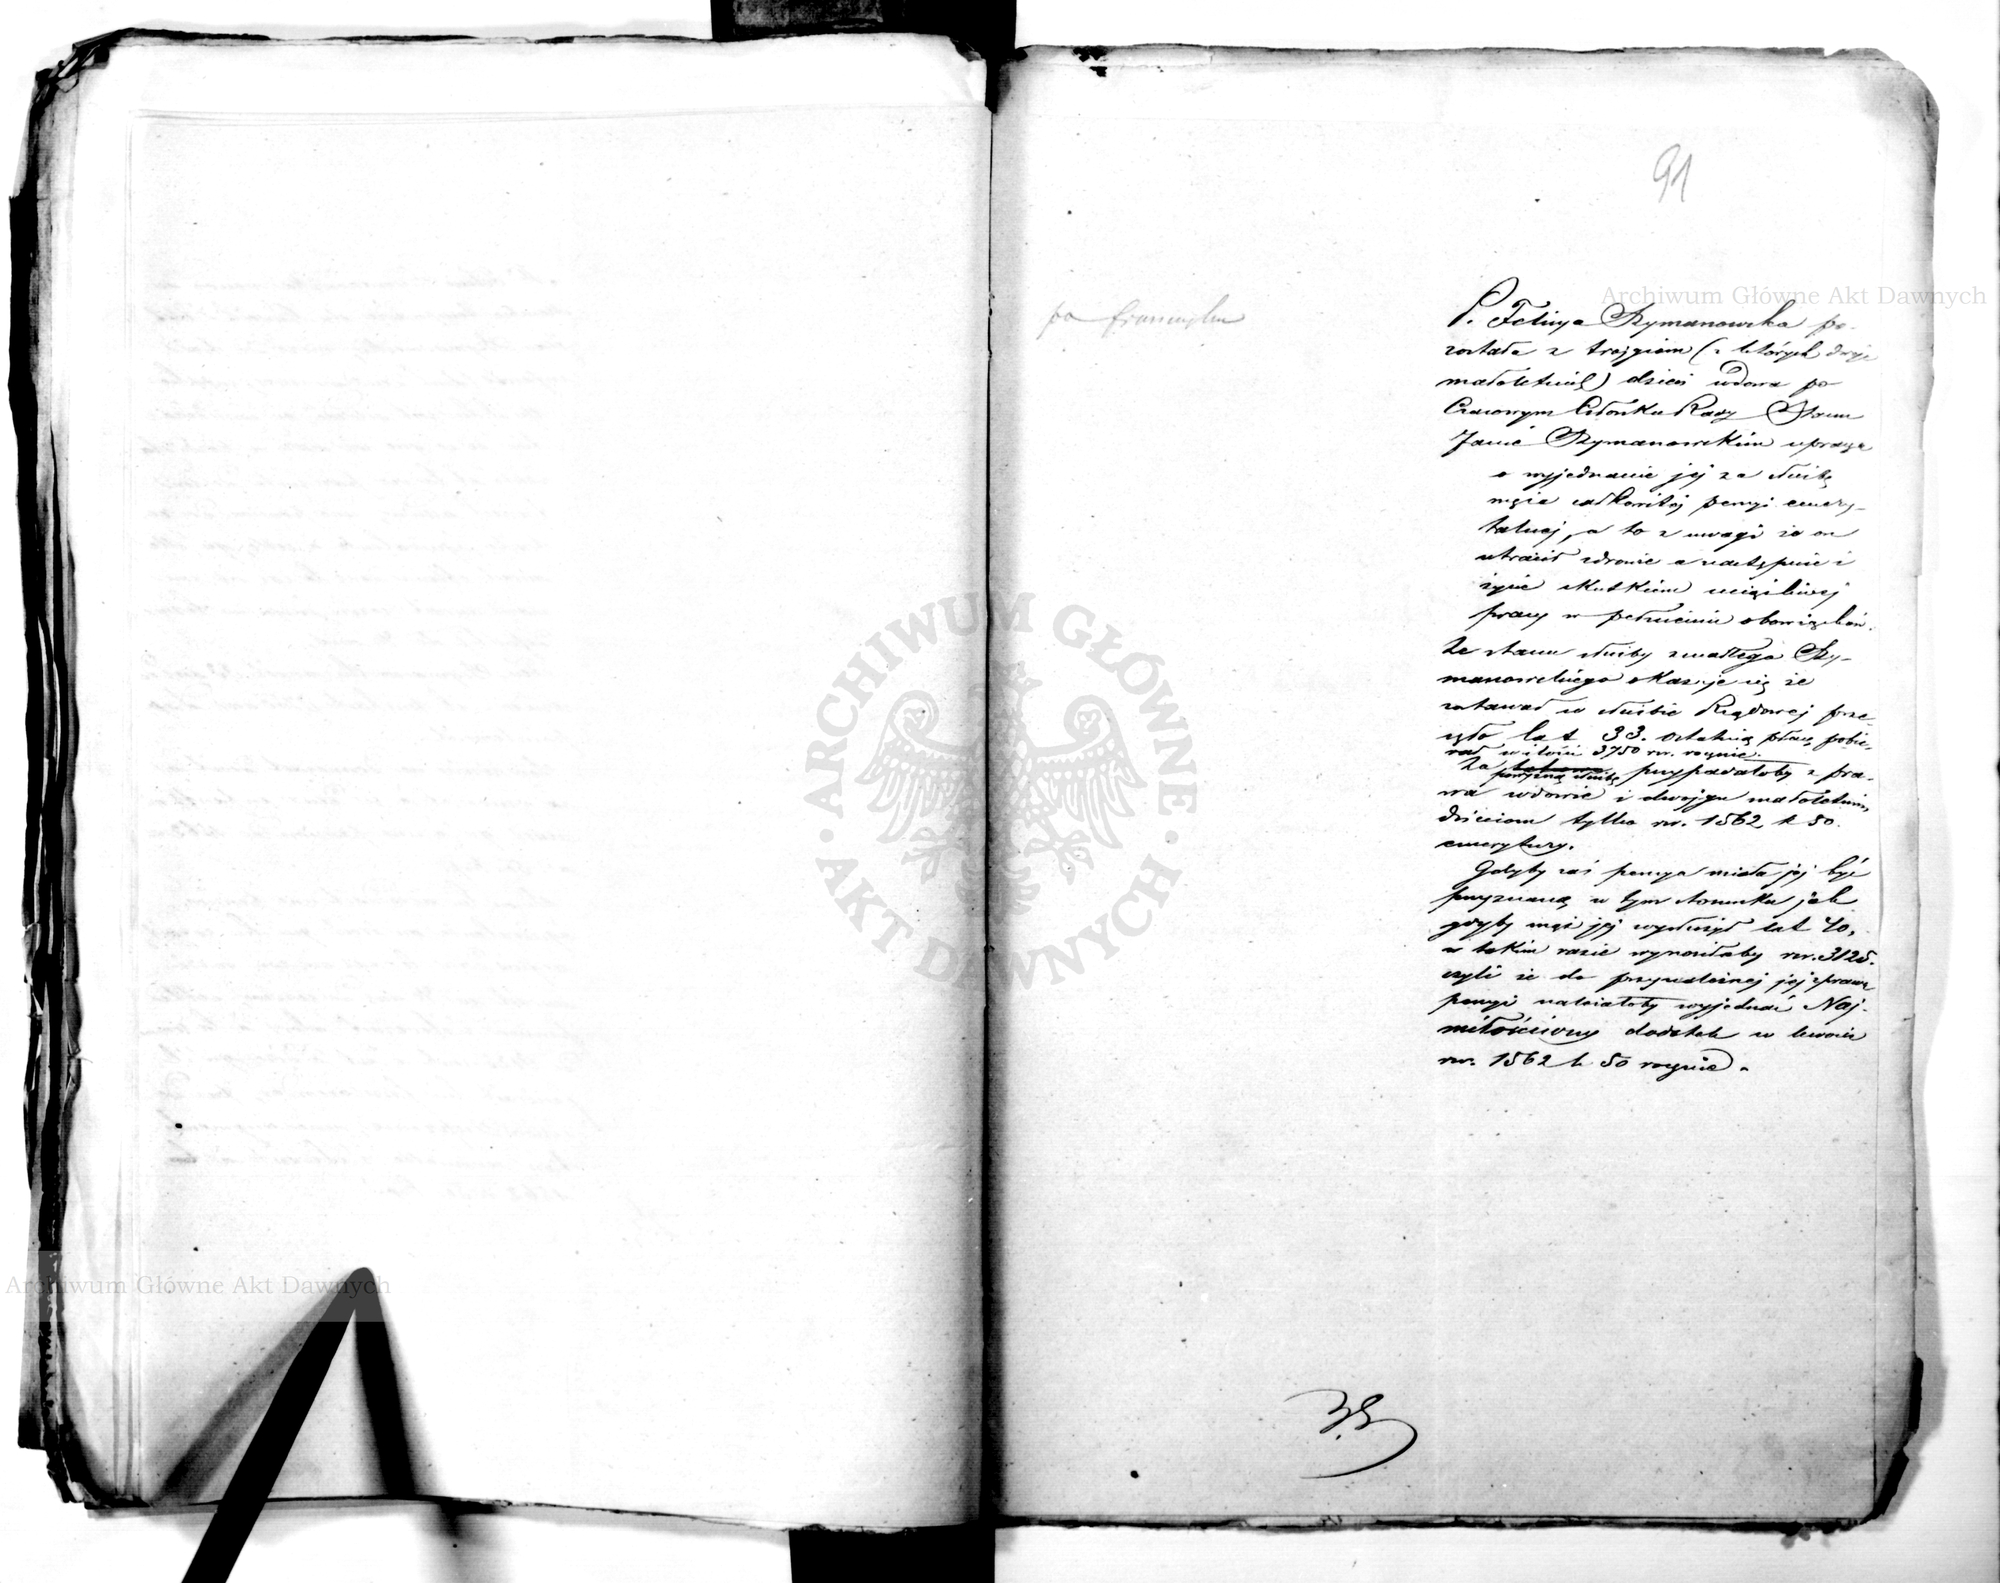 91
po francuzku
P. Felicya Szymanowska po-
została z trojgiem (z których dwoje
małoletnich) dzieci wdowa po
Czasowym Członku Rady Stanu
Janie Szymanowskim uprasza
o wyjednanie jej za służbę
męża całkowitej pensyi emery-
talnej, a to z uwagi że on
utracił zdrowie a następnie i
życie skutkiem uciążliwej
pracy w pełnieniu obowiązków.
Ze stanu służby zmarłego Szy-
manowskiego okazuje się że
zostawał w służbie Rządowej prze-
szło lat 33. ostatnią płacę pobie-
rał w ilości 3750 rsr. rocznie.
Za powyższą służbę przypadałoby z pra-
wa wdowie i dwojgu małoletnim
dzieciom tylko rsr. 1562 k 50.
emerytury.
Gdyby zaś pensya miała jej być
przyznaną w tym stosunku jak
gdyby mąż jej wysłużył lat 40,
w takim razie wynosiłaby rsr. 3125.
czyli że do przynależnej jej z prawa
pensyi należałoby wyjednać Naj-
miłościwszy dodatek w kwocie
rsr. 1562 k 50 rocznie.
Archiwum Główne Akt Dawnych
Archiwum Główne Akt Dawnych
ARCHIWUM GŁÓWNE
AKT DAWNYCH